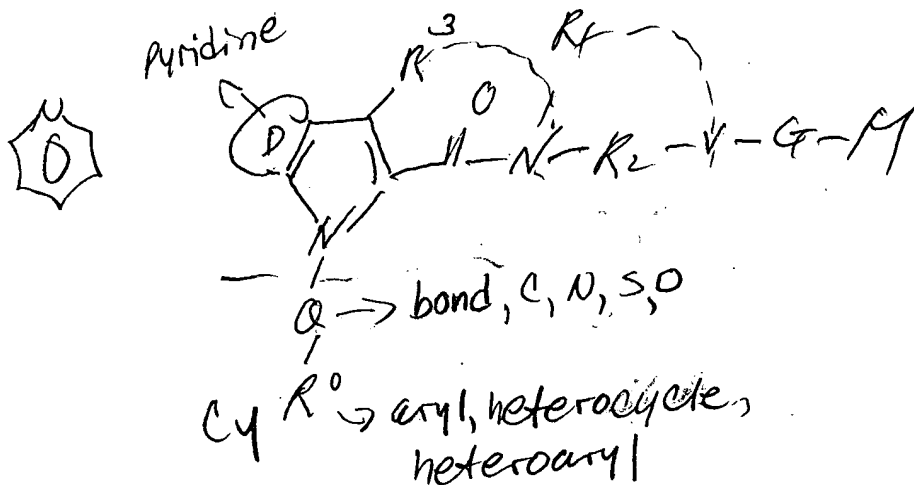 Pyridine
R³ R₄
O
N
D
N - R₂ - V - G - M
N
Q → bond, C, N, S, O
Cy R⁰ ↳ aryl, heterocycle,
heteroaryl